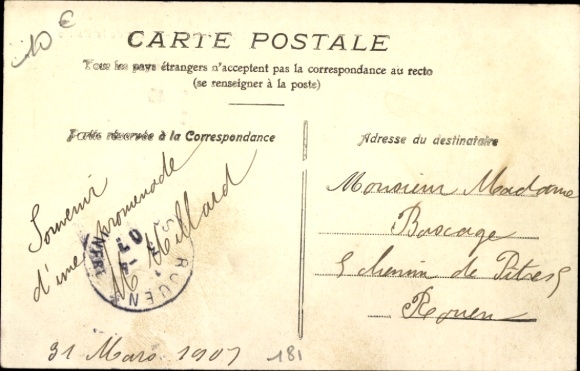 10 €
CARTE POSTALE
Tous les pays étrangers n'acceptent pas la correspondance au recto
(se renseigner à la poste)
Partie réservée à la Correspondance
Adresse du destinataire
Souvenir
d'une promenade
M Millard
ROUEN
31 Mars 1907
181
Monsieur Madame
Bascage
5 chemin de Pitres
Rouen